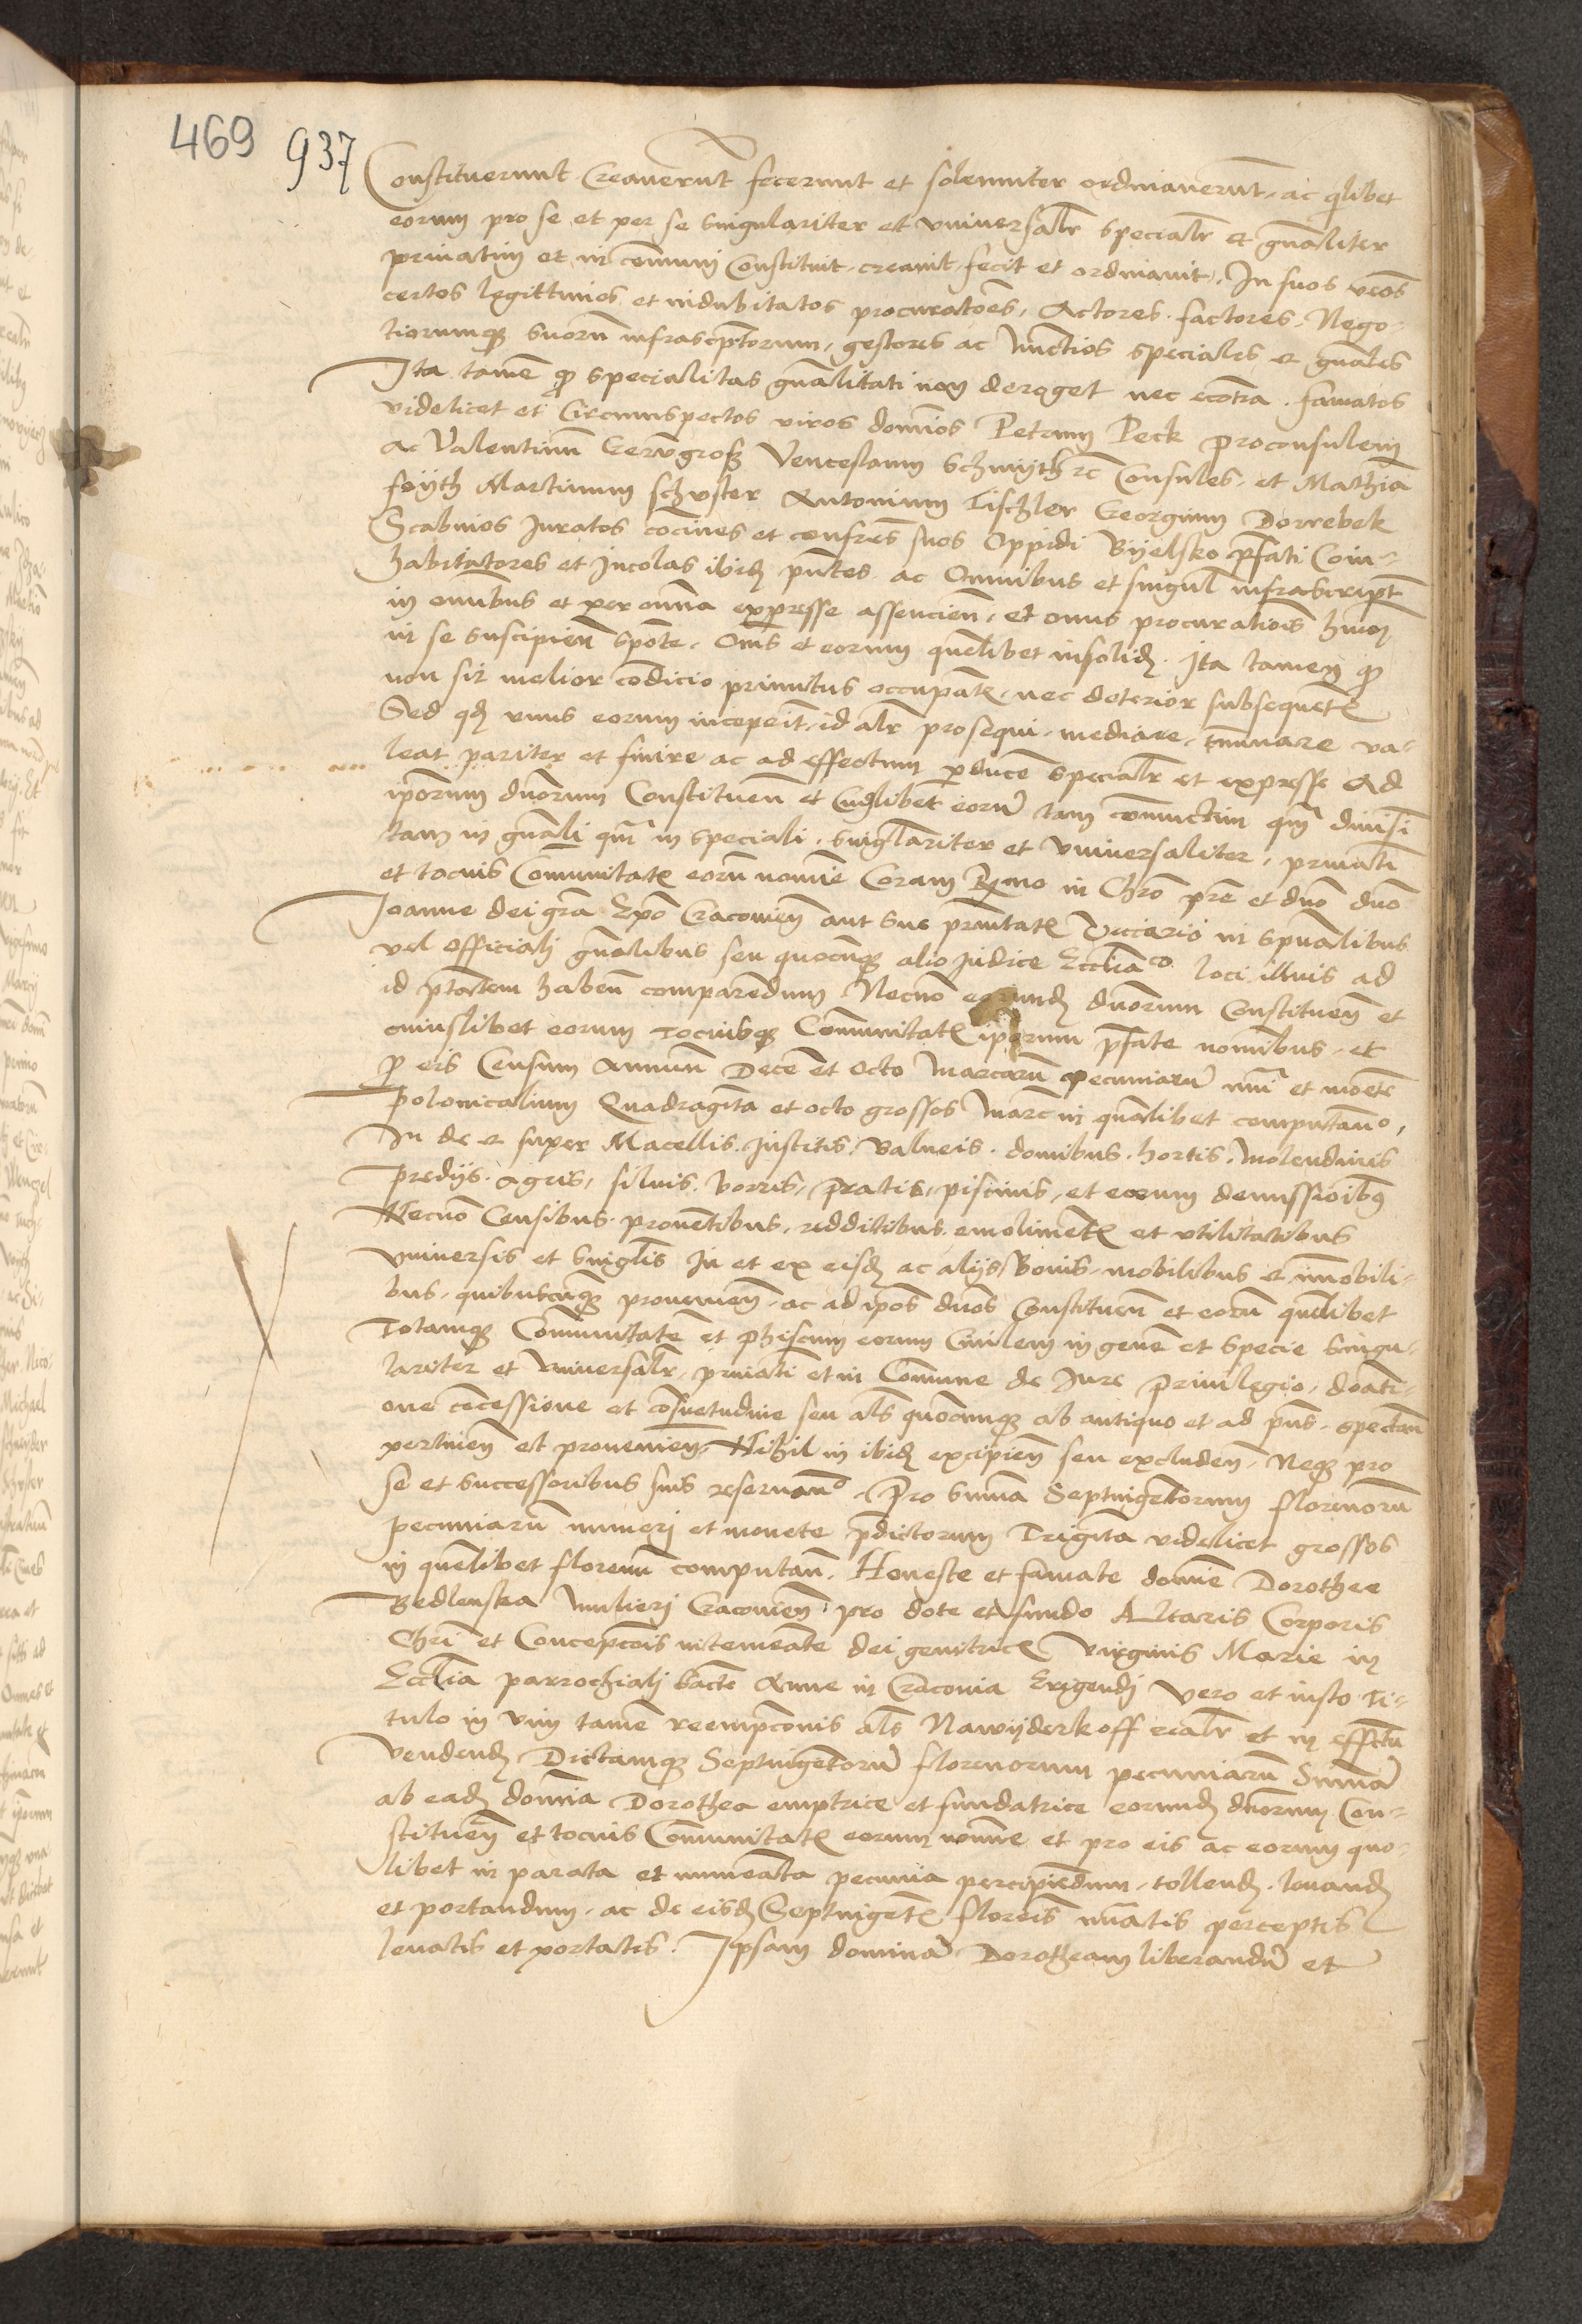 469 937
Constituerunt Creauerūt fecerunt et solenniter ordinauerūt, ac qlibet
eorum pro se et per se singulariter et vniuersalr̄ specialr̄ et gn̄aliter
priuatim et in cōmuni Constituit, creauit, fecit et ordinauit. In suos veros
certos legittimos et indubitatos procuratōes, Actores, factores, Nego-
tiorumqꝫ suorū infrascp̄torum, gestores ac Nuncios speciales et gn̄ales
Ita tamē qꝫ specialitas gn̄alitati non deroget nec ecōtra. famatos
videlicet et Circumspectos viros domīos Petrum Peck proconsulem
ac Valentinū Venceslaum Schmÿth rc̄ Consules, et Mathiā
foÿth Martinum schuster Antonium Tischler Georgium Dorrebek
Scabinos Juratos cōciues et confrēs suos Oppidi Bÿelsko p̄fati Coin-
habitatores et Incolas ibidꝫ pn̄tes ac Omnibus et singul̄ infrascript̄
in omībus et per omnia expresse assencien̄, et onus procuratiois hm̄oi
in se suscipien̄ spōte, Om̄s et eorum quēlibet insolidꝫ. Ita tamen qꝫ
non sit melior cōdicio primitus occupātꝭ, nec deterior subsequētꝭ
Sed qdꝫ vnus eorum inceperit, id alr̄ prosequi, mediare, t̄minare va-
leat pariter et finire ac ad effectum pducē̄ specialr̄ et expresse Ad
ipōrum dn̄orum Constituen̄ et Cuiꝰlibet eorū tam cōniunctim qm̄ diuisī
tam in gn̄ali qm̄ in speciali, singl̄ariter et vniuersaliter, priuatī
et tocius Cōmunitatꝭ eorū nomīe Coram Rͫo in Chrō pr̄e et dn̄o dn̄o
Joanne dei grā Epō Cracouien̄ aut sue pr̄nitatꝭ Viccario in spūalibus
vel officialj gn̄alibus seu quocūqꝫ alio Judice Ecclīaᶜᵒ loci illius ad
id ptātem haben̄ comparēdum Necnō eorundꝫ dn̄orum Constituen̄ et
cuiuslibet eorum tociusqꝫ Cōmunitatꝭ ipōrum p̄fate nomībus, et
p eis Censum Annuū Decē et octo Marcarū pecuniarū nūi et mōete
polonicalium Quadragīta et octo grossos Marc̄ in quālibet computān̄o,
In de et super Macellis, Institis, Balneis, domibus, hortis, Molendinis
predijs, agris, siluis, borris, pratis, piscinis, et eorum demissioibꝫ
Necnō Censibus, prouētibus, redditibus, emolimētꝭ et vtilitatibus
vniuersis et singl̄is In et ex eisdꝫ ac alijs Bonis, mobilibus et im̄obili-
bus, quibuscūqꝫ prouenien̄, ac ad ipōs dn̄os Constituen̄ et eorū quēlibet
Totamqꝫ Cōmunitatē et phiscum eorum Ciuilem in genē et specie singu-
lariter et vniuersalr̄, priuatī et in Cōmune de Jure priuilegio, doati-
one cōcessione et cōsuetudine seu als̄ quōcumqꝫ ab antiquo et ad pn̄s spectan̄
pertinen̄ et prouenien̄ Nihil in ibidꝫ excipien̄ seu excluden̄, Neqꝫ pro
se et successoribus suis reseruan̄o. Pro summa Septuingētorum florenorū
pecuniarū numerj et monete p̄dictorum Trigīta videlicet grossos
in quēlibet florenū computan̄. Honeste et famate domīe Dorothee
Bedlenska mulierj Cracouien̄ pro dote et fundo Altaris Corporis
Chrī et Concepcōis intemeāte dei genitricꝭ Virginis Marie in
Ecclīa parrochialj sancte Anne in Cracouia Erigendj Vero et iusto Ti-
tulo in vim tamē reempcōnis als̄ Nawÿderkoff realr̄ et in effctū
Vendendꝫ Dictamqꝫ Septuingētorū florenorum pecuniarū Summā
ab eadꝫ domīa Dorothea emptrice et fundatrice eorundꝫ dn̄orum Con-
stituen̄ et tocius Cōmunitatꝭ eorum nomīe et pro eis ac eorum quo-
libet in parata et numeāta pecunia percipiēdum, tollendꝫ, leuandꝫ
et portandum, ac de eisdꝫ Septuingētꝭ floreīs nūatis perceptis
leuatis et portatis. Ipsam dominā Dorotheam liberandū et